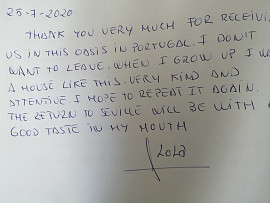 25-7-2020
THANK YOU VERY MUCH FOR RECEIVING
US IN THIS OASIS IN PORTUGAL. I DON'T
WANT TO LEAVE. WHEN I GROW UP I W
A HOUSE LIKE THIS. VERY KIND AND
ATTENTIVE I HOPE TO REPEAT IT AGAIN.
THE RETURN TO SEVILLE WILL BE WITH A
GOOD TASTE IN MY MOUTH
LOLA